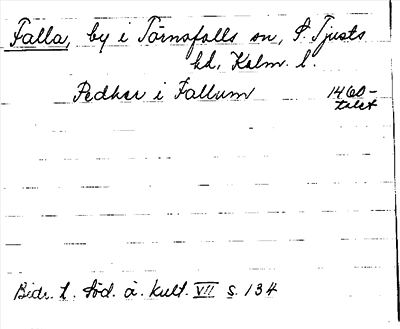 Falla, by i Törnsfalls sn, S. Tjusts
hd, Kalm. l.
Pedhar i Fallum 1460-
talet
Bidr. t. Söd. å. kult. VII s. 134